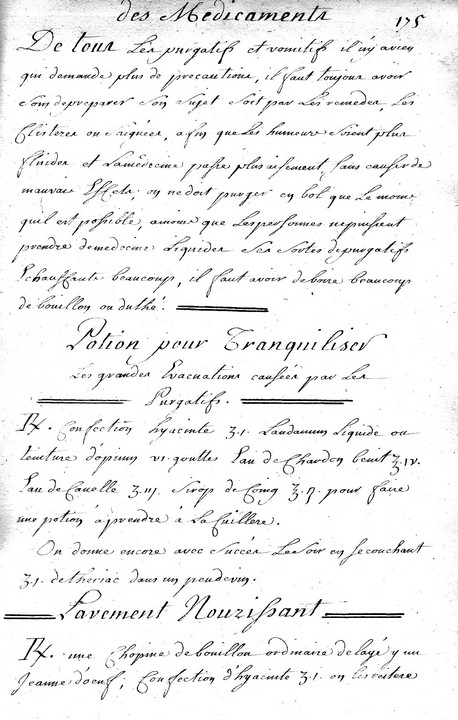 des Medicaments 175
De tous Les purgatifs et vomitifs il n'y a rien
qui demande plus de precautions, il faut toujour avoir
soin de preparer son sujet soit par Les remedes, Les
Clisteres ou saignées, afin que Les humeurs soient plus
fluides et La médecine passe plus aisement, sans causer de
mauvais Effets; on ne doit purger en bol que Le moins
qu'il est possible, amoins que Les personnes ne puissent
prendre de medecine Liquides ses sortes de purgatifs
Echauffants beaucoup, il faut avoir de boire beaucoup
de bouillon ou du thé.
Potion pour Tranquiliser
Les grandes Evacuations causées par Les
Purgatifs.
℞. Confection hyacinte ʒ.i. Laudanum Liquide ou
teinture d'opium vi. gouttes Eau de Chardon benit ʒ.iv.
Eau de Canelle ʒ.iij. Sirop de Coing pour faire
une potion à prendre à La Cuillere.
On donne encore avec Succès Le Soir en se couchant
ʒ.i. de theriac dans un peu de vin.
Lavement Nourissant
℞. une Chopine de bouillon ordinaire delayé y un
Jeaune d'oeuf; Confection d'hyacinte ʒ.i. on Les reitere